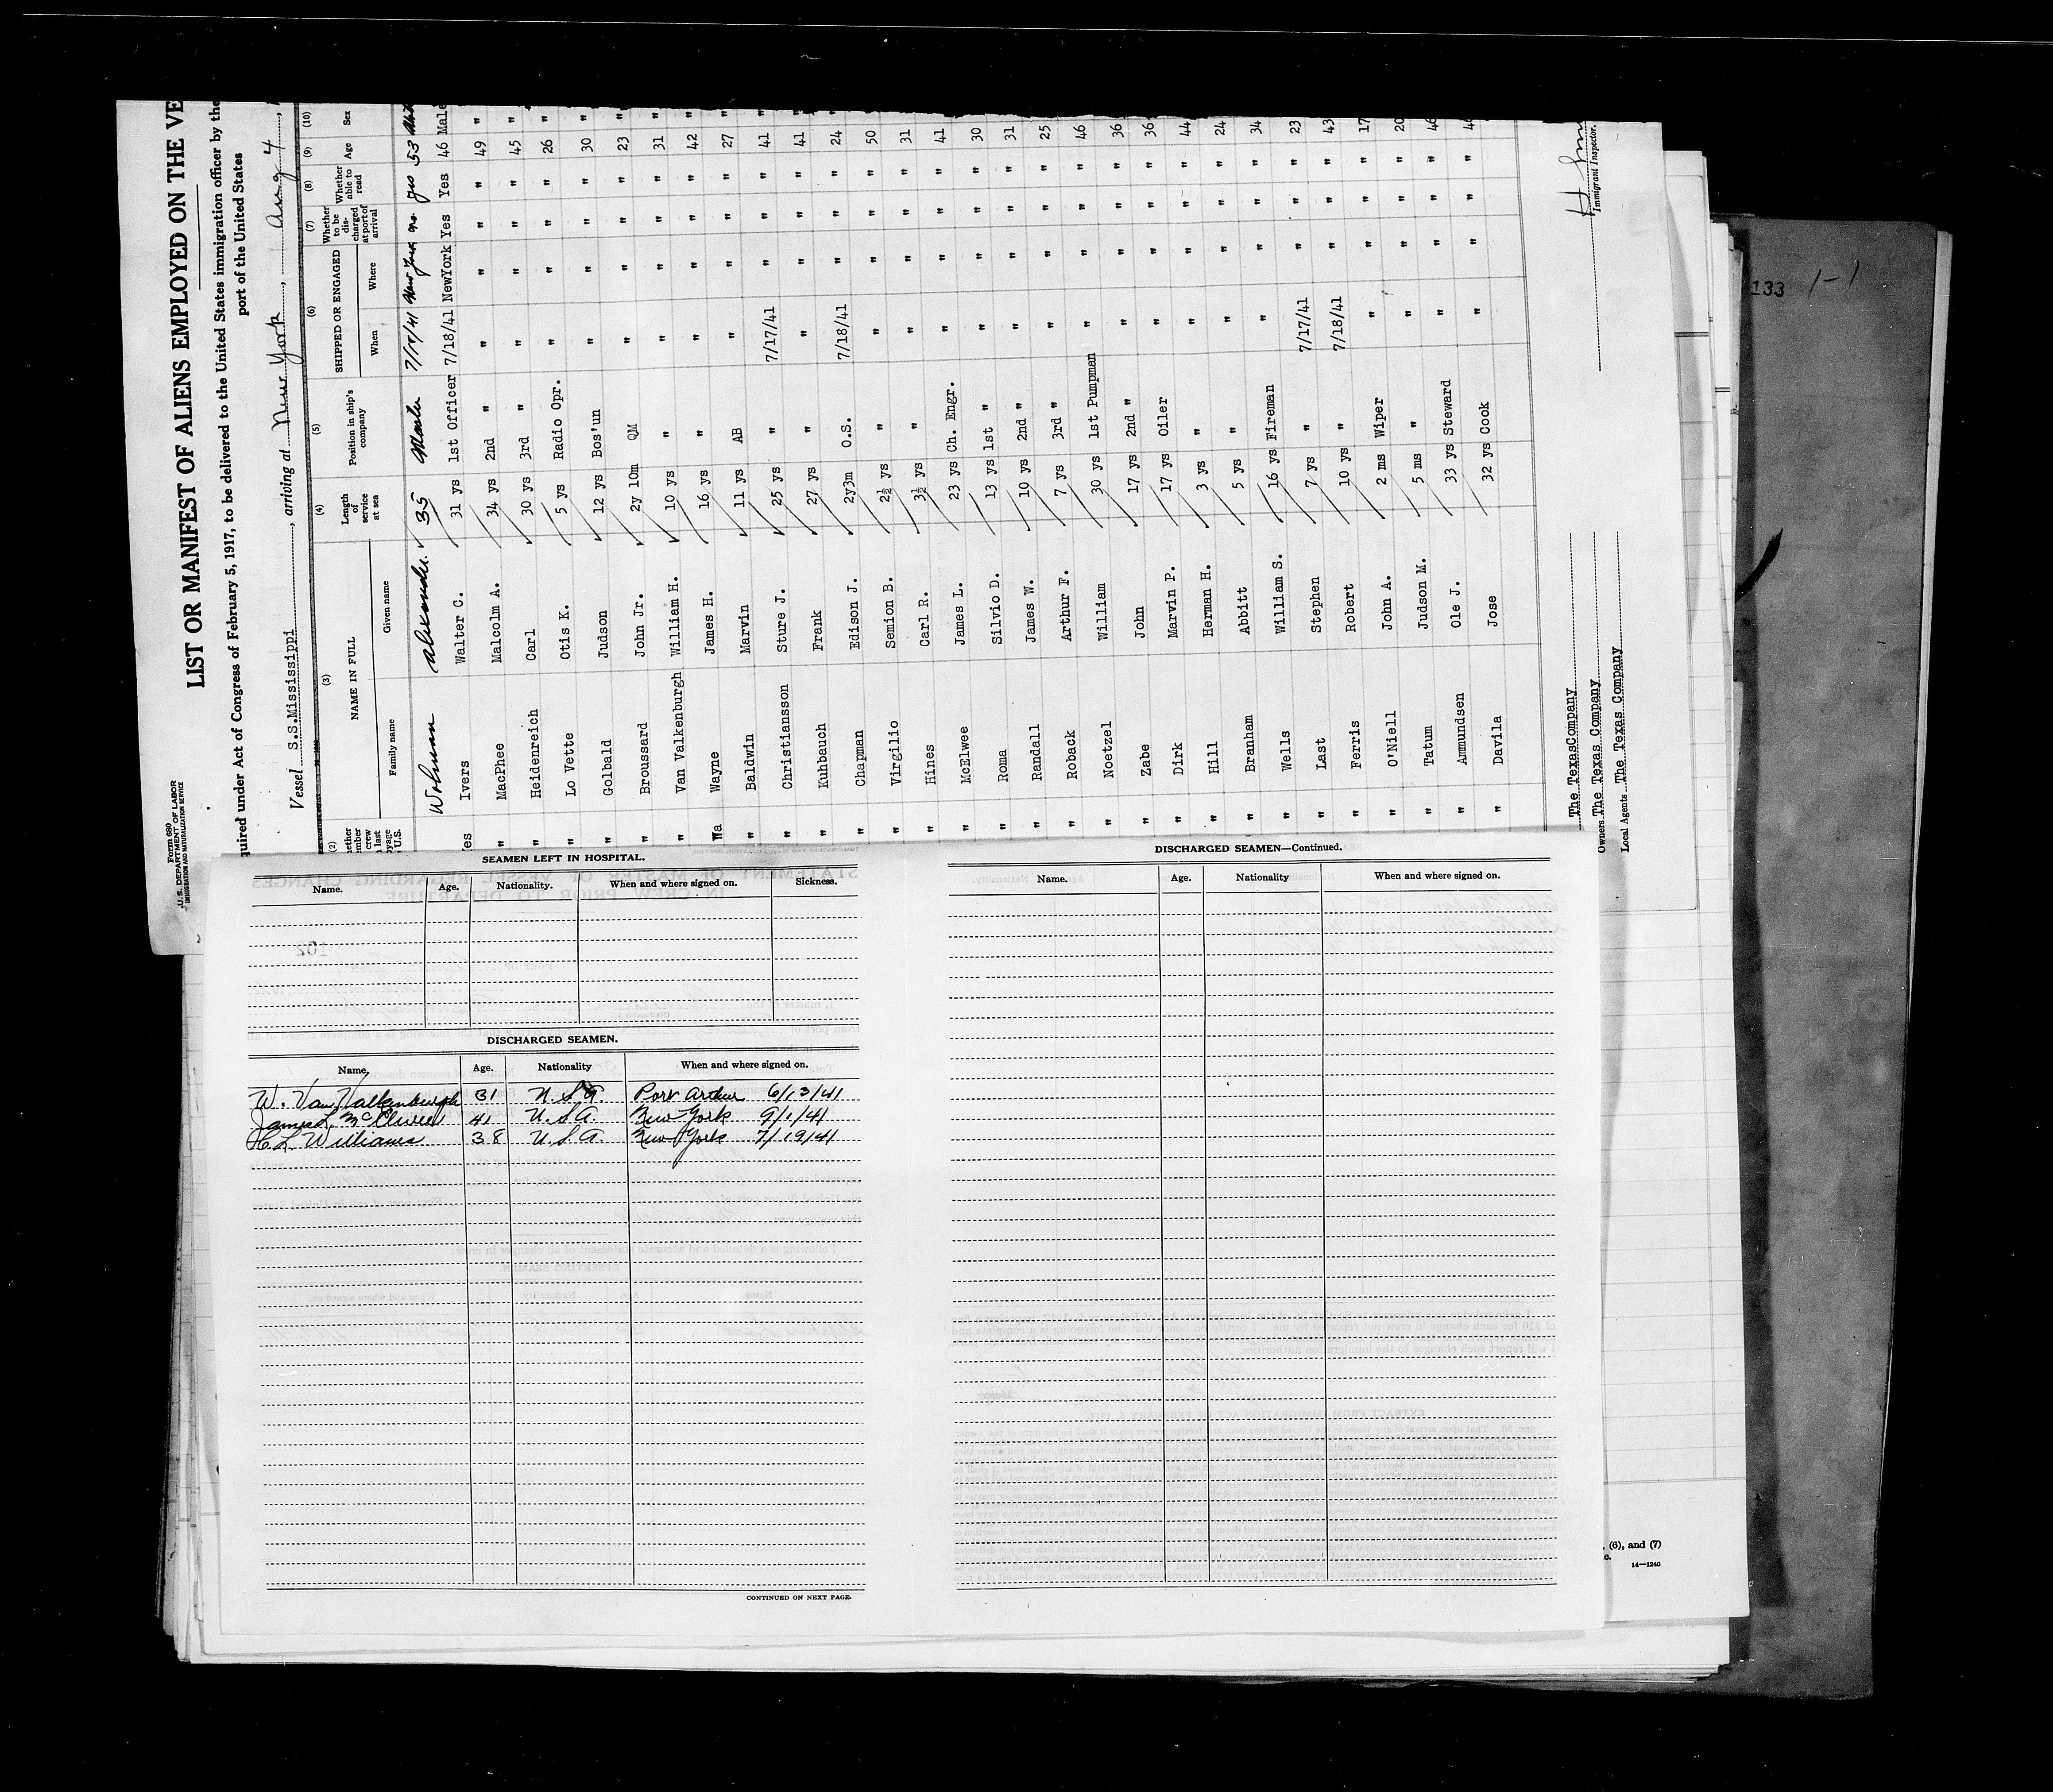 Form 680
U. S. DEPARTMENT OF LABOR
IMMIGRATION AND NATURALIZATION SERVICE
LIST OR MANIFEST OF ALIENS EMPLOYED ON THE VE
quired under Act of Congress of February 5, 1917, to be delivered to the United States immigration officer by the
port of the United States
Vessel S.S.Mississippi, arriving at New York, Aug 4,
(2) (3) (4) (5) (6) (7) (8) (9) (10)
NAME IN FULL
Family name Given name
Length of service at sea
Position in ship's company
SHIPPED OR ENGAGED
When Where
Whether to be discharged at port of arrival
Whether able to read
Age
Sex
Wolman Alexander 35 Master 7/18/41 New York yes 53
Yes Ivers Walter C. 31 ys 1st Officer 7/18/41 NewYork Yes Yes 46 Male
" MacPhee Malcolm A. 34 ys 2nd " " " " " 49 "
" Heidenreich Carl 30 ys 3rd " " " " " 45 "
" Lo Vette Otis K. 5 ys Radio Opr. " " " " 26 "
" Golbald Judson 12 ys Bos'un " " " " 30 "
" Broussard John Jr. 2y 10m QM " " " " 23 "
" Van Valkenburgh William H. 10 ys " " " " " 31 "
Wa Wayne James H. 16 ys " " " " " 42 "
" Baldwin Marvin 11 ys AB " " " " 27 "
" Christiansson Sture J. 25 ys " 7/17/41 " " " 41 "
" Kuhbauch Frank 27 ys " " " " " 41 "
" Chapman Edison J. 2y3m O.S. 7/18/41 " " " 24 "
" Virgilio Semion B. 2½ ys " " " " " 50
" Hines Carl R. 3½ ys " " " " " 31
" McElwee James L. 23 ys Ch. Engr. " " " " 41
" Roma Silvio D. 13 ys 1st " " " " " 30
" Randall James W. 10 ys 2nd " " " " " 31
" Roback Arthur F. 7 ys 3rd " " " " " 25
" Noetzel William 30 ys 1st Pumpman " " " " 46
" Zabe John 17 ys 2nd " " " " " 36
" Dirk Marvin P. 17 ys Oiler " " " " 36
" Hill Herman H. 3 ys " " " " " 44
" Branham Abbitt 5 ys " " " " " 24
" Wells William S. 16 ys Fireman " " " " 34
" Last Stephen 7 ys " 7/17/41 " " " 23
" Ferris Robert 10 ys " 7/18/41 " " " 43
" O'Niell John A. 2 ms Wiper " " " " 17
" Tatum Judson M. 5 ms " " " " " 20
" Ammundsen Ole J. 33 ys Steward " " " " 46
" Davila Jose 32 ys Cook " " " " 46
Immigrant Inspector.
The TexasCompany
Owners The Texas Company
Local Agents The Texas Company
133 1-1
SEAMEN LEFT IN HOSPITAL.
Name. Age. Nationality. When and where signed on. Sickness.
DISCHARGED SEAMEN.
Name. Age. Nationality When and where signed on.
W. Van Valkenburgh 31 U.S.A. Port Arthur 6/13/41
James L. McElwee 41 U.S.A. New York 9/1/41
C. L. Williams 38 U.S.A. New York 7/19/41
CONTINUED ON NEXT PAGE.
DISCHARGED SEAMEN—Continued.
Name. Age. Nationality When and where signed on.
, (6), and (7)
14—1240